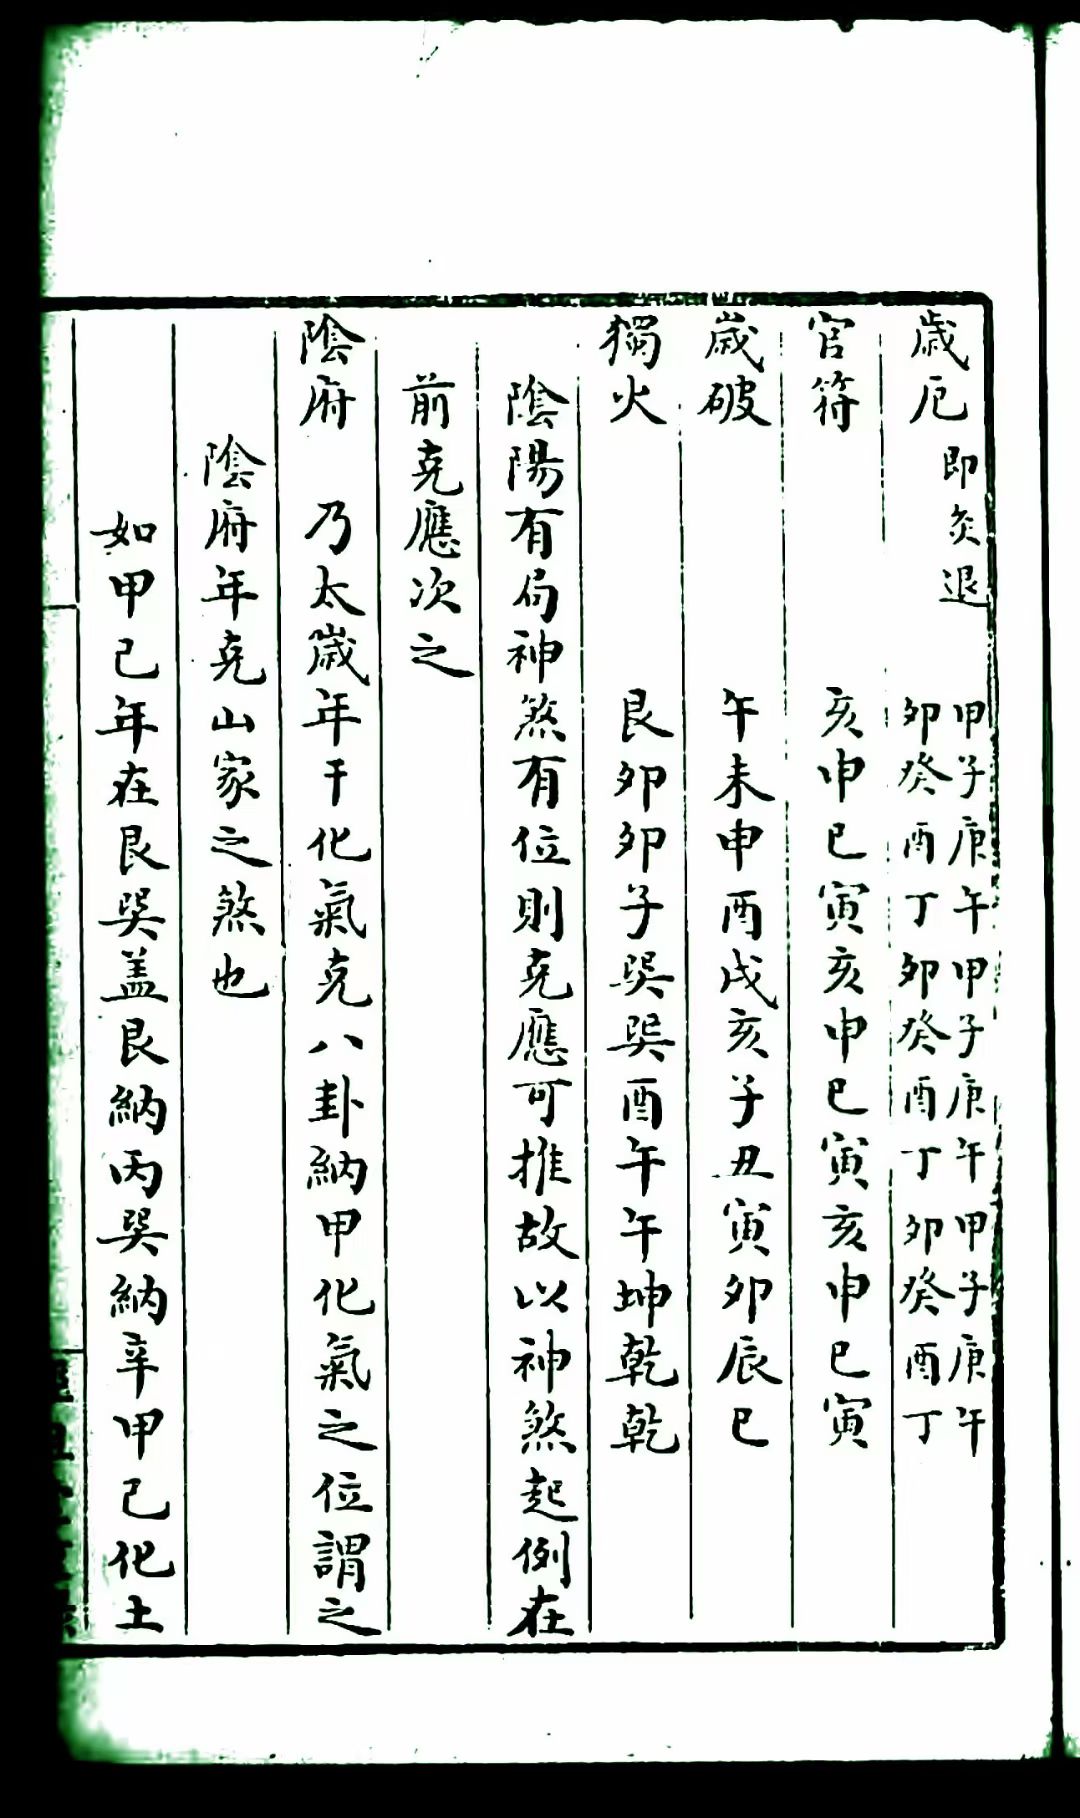 歲厄 即灸退 甲子庚午甲子庚午甲子庚午
卯癸酉丁卯癸酉丁卯癸酉丁
官符 亥申巳寅亥申巳寅亥申巳寅
歲破 午未申酉戌亥子丑寅卯辰巳
獨火 艮卯卯子巽巽酉午午坤乾乾
陰陽有局神煞有位則克應可推故以神煞起例在
前克應次之
陰府 乃太歲年干化氣克八卦納甲化氣之位謂之
陰府年克山家之煞也
如甲己年在艮巽盖艮納丙巽納辛甲己化土